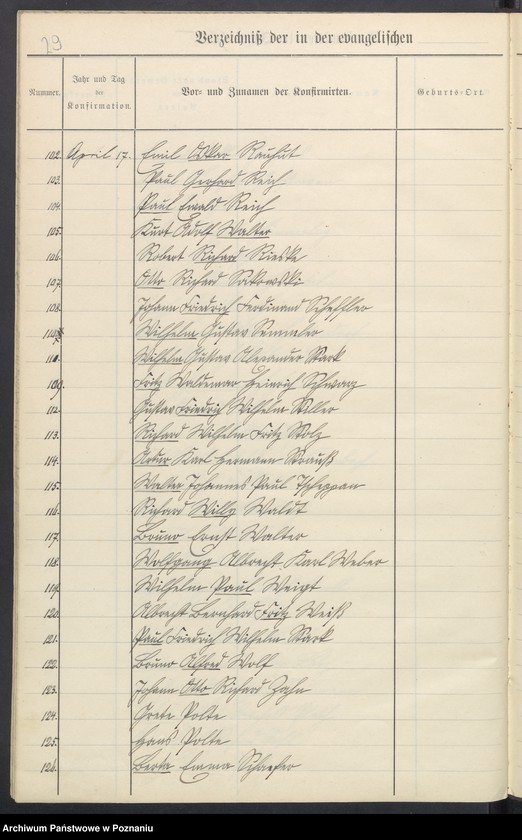 29
Verzeichniß der in der evangelischen
Nummer.
Jahr und Tag
der
Konfirmation.
Vor- und Zunamen der Konfirmirten.
Geburts-Ort.
102. April 17. Emil Oskar Rauhut
103. Paul Gerhard Reich
104. Paul Ewald Reich
105. Kurt Adolf Walter
106. Robert Richard Rieske
107. Otto Richard Sakowski
108. Johann Friedrich Ferdinand Scheffler
Wilhelm Gustav Semmler
110. Wilhelm Gustav Alexander Stark
109. Fritz Waldemar Heinrich Schwarz
112. Gustav Friedrich Wilhelm
113. Richard Wilhelm Fritz Stolz
114. Artur Karl Hermann Strauß
115. Walter Johannes Paul Tscheppan
116. Richard Willy Waldt
117. Bruno Ernst Walter
118. Wolfgang Albrecht Karl Weber
119. Wilhelm Paul Weigt
120. Albrecht Bernhard Fritz Weiß
121. Paul Friedrich Wilhelm Stark
122. Bruno Alfred Wolf
123. Johann Otto Richard Zahn
124. Grete Polte
125. Hans Polte
126. Berta Emma Schaefer
Archiwum Państwowe w Poznaniu